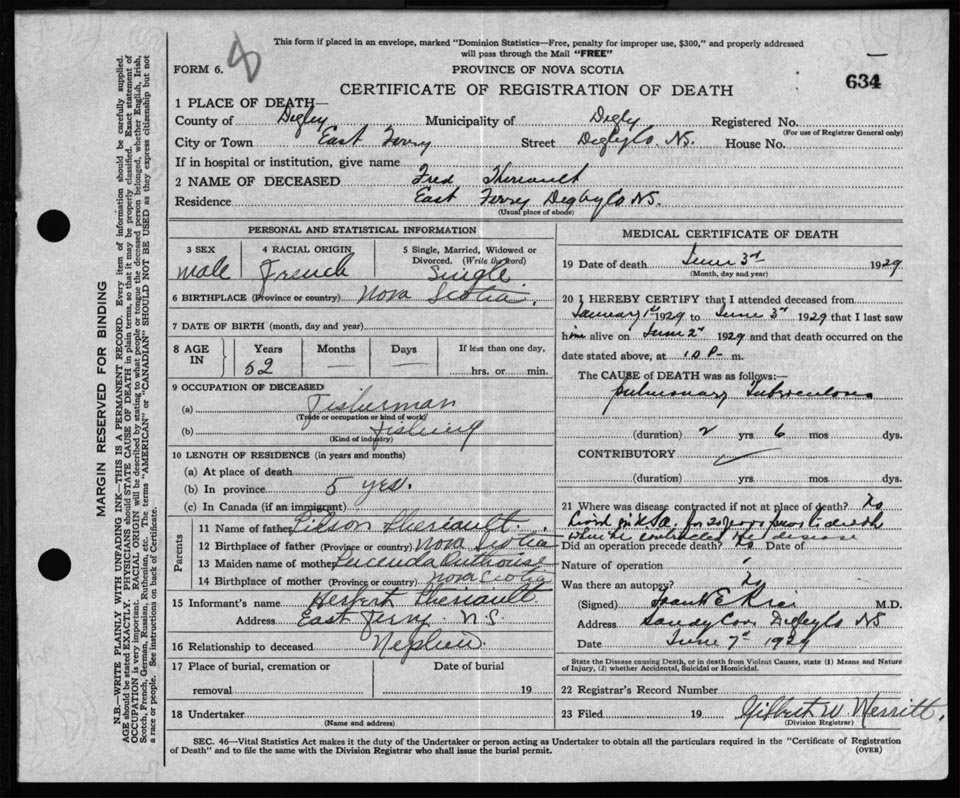 8
This form if placed in an envelope, marked "Dominion Statistics—Free, penalty for improper use, $300," and properly addressed
will pass through the Mail "FREE"
FORM 6.
PROVINCE OF NOVA SCOTIA
634
CERTIFICATE OF REGISTRATION OF DEATH
1 PLACE OF DEATH—
County of Digby Municipality of Digby Registered No.
(For use of Registrar General only)
City or Town East Ferry Street Digby Co. N.S. House No.
If in hospital or institution, give name
2 NAME OF DECEASED Fred Theriault
Residence East Ferry Digby Co N.S.
(Usual place of abode)
PERSONAL AND STATISTICAL INFORMATION
3 SEX
male
4 RACIAL ORIGIN
French
5 Single, Married, Widowed or Divorced. (Write the word)
Single
6 BIRTHPLACE (Province or country) Nova Scotia.
7 DATE OF BIRTH (month, day and year)
8 AGE IN
Years
52
Months
—
Days
—
If less than one day,
hrs. or min.
9 OCCUPATION OF DECEASED
(a) Fisherman
(Trade or occupation or kind of work)
(b) Fishing
(Kind of industry)
10 LENGTH OF RESIDENCE (in years and months)
(a) At place of death
(b) In province 5 yrs.
(c) In Canada (if an immigrant)
Parents
11 Name of father Theriault
12 Birthplace of father (Province or country) Nova Scotia
13 Maiden name of mother
14 Birthplace of mother (Province or country) Nova Scotia
15 Informant's name Herbert Theriault
Address East Ferry N.S.
16 Relationship to deceased Nephew
17 Place of burial, cremation or removal
Date of burial
19
18 Undertaker
(Name and address)
MEDICAL CERTIFICATE OF DEATH
19 Date of death June 3rd 1929
(Month, day and year)
20 I HEREBY CERTIFY that I attended deceased from
January 1st 1929 to June 3rd 1929 that I last saw
him alive on June 2nd 1929 and that death occurred on the
date stated above, at 10 P. m.
The CAUSE of DEATH was as follows:—
Pulmonary Tuberculosis
(duration) 2 yrs. 6 mos dys.
CONTRIBUTORY
(duration) yrs. mos dys.
21 Where was disease contracted if not at place of death? No
Lived in U.S.A. for 20 years previous to death
where he contracted the disease
Did an operation precede death? No Date of
Nature of operation
Was there an autopsy? No
(Signed) Frank E Rice M.D.
Address Sandy Cove Digby Co NS
Date June 7th 1929
State the Disease causing Death, or in death from Violent Causes, state (1) Means and Nature
of Injury, (2) whether Accidental, Suicidal or Homicidal.
22 Registrar's Record Number
23 Filed 19 Gilbert W. Merritt.
(Division Registrar)
SEC. 46—Vital Statistics Act makes it the duty of the Undertaker or person acting as Undertaker to obtain all the particulars required in the "Certificate of Registration
of Death" and to file the same with the Division Registrar who shall issue the burial permit.
(OVER)
MARGIN RESERVED FOR BINDING
N.B.—WRITE PLAINLY WITH UNFADING INK—THIS IS A PERMANENT RECORD. Every item of information should be carefully supplied.
AGE should be stated EXACTLY. PHYSICIANS should STATE CAUSE OF DEATH in plain terms, so that it may be properly classified. Exact statement of
OCCUPATION is very important. RACIAL ORIGIN will be described by stating to what people or tongue the deceased person belonged, whether English, Irish,
Scotch, French, German, Russian, Ruthenian, etc. The terms "AMERICAN" or "CANADIAN" SHOULD NOT BE USED as they express citizenship but not
a race or people. See instructions on back of Certificate.